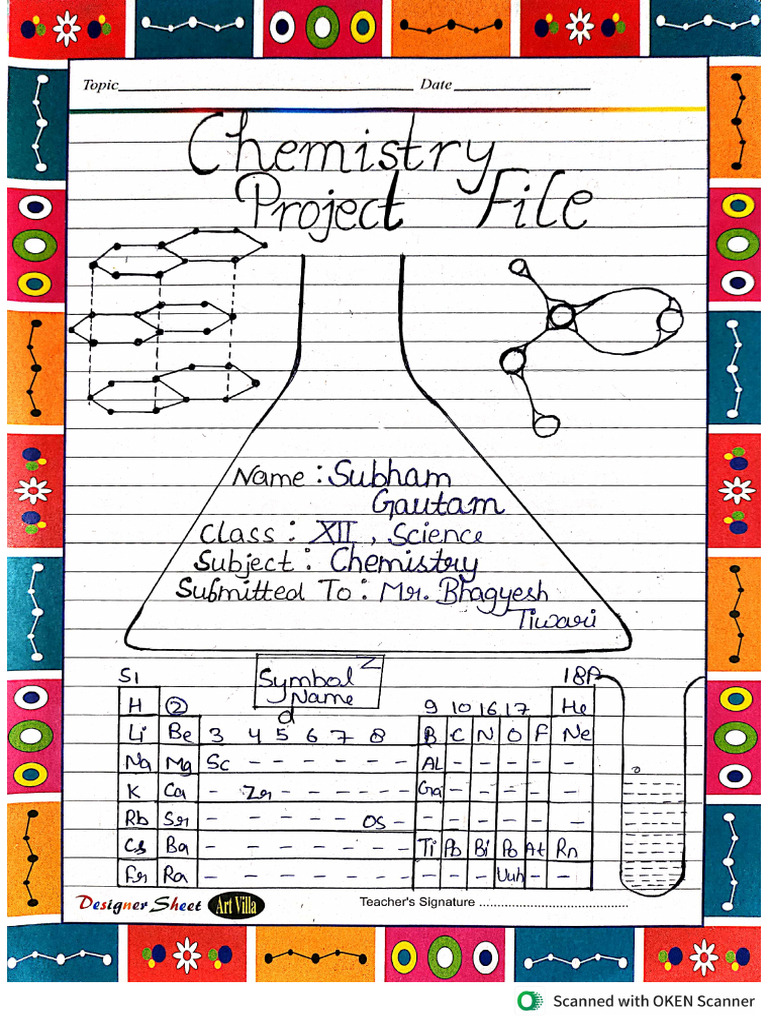 Topic Date
Chemistry
Project File
Name : Subham
Gautam
Class : XII , Science
Subject : Chemistry
Submitted To : Mr. Bhagyesh
Tiwari
S1 Symbol Z 18A
Name
H ② d 9 10 16 17 He
Li Be 3 4 5 6 7 8 B C N O F Ne
Na Mg Sc - - - - - - AL - - - - -
K Ca - Zr - - - - - Ga - - - - -
Rb Sr - - - - - Os - - - - - - -
Cs Ba - - - - - - - Ti Pb Bi Po At Rn
Fr Ra - - - - - - - - - - Uuh - -
Designer Sheet Art Villa Teacher's Signature ................................
Scanned with OKEN Scanner